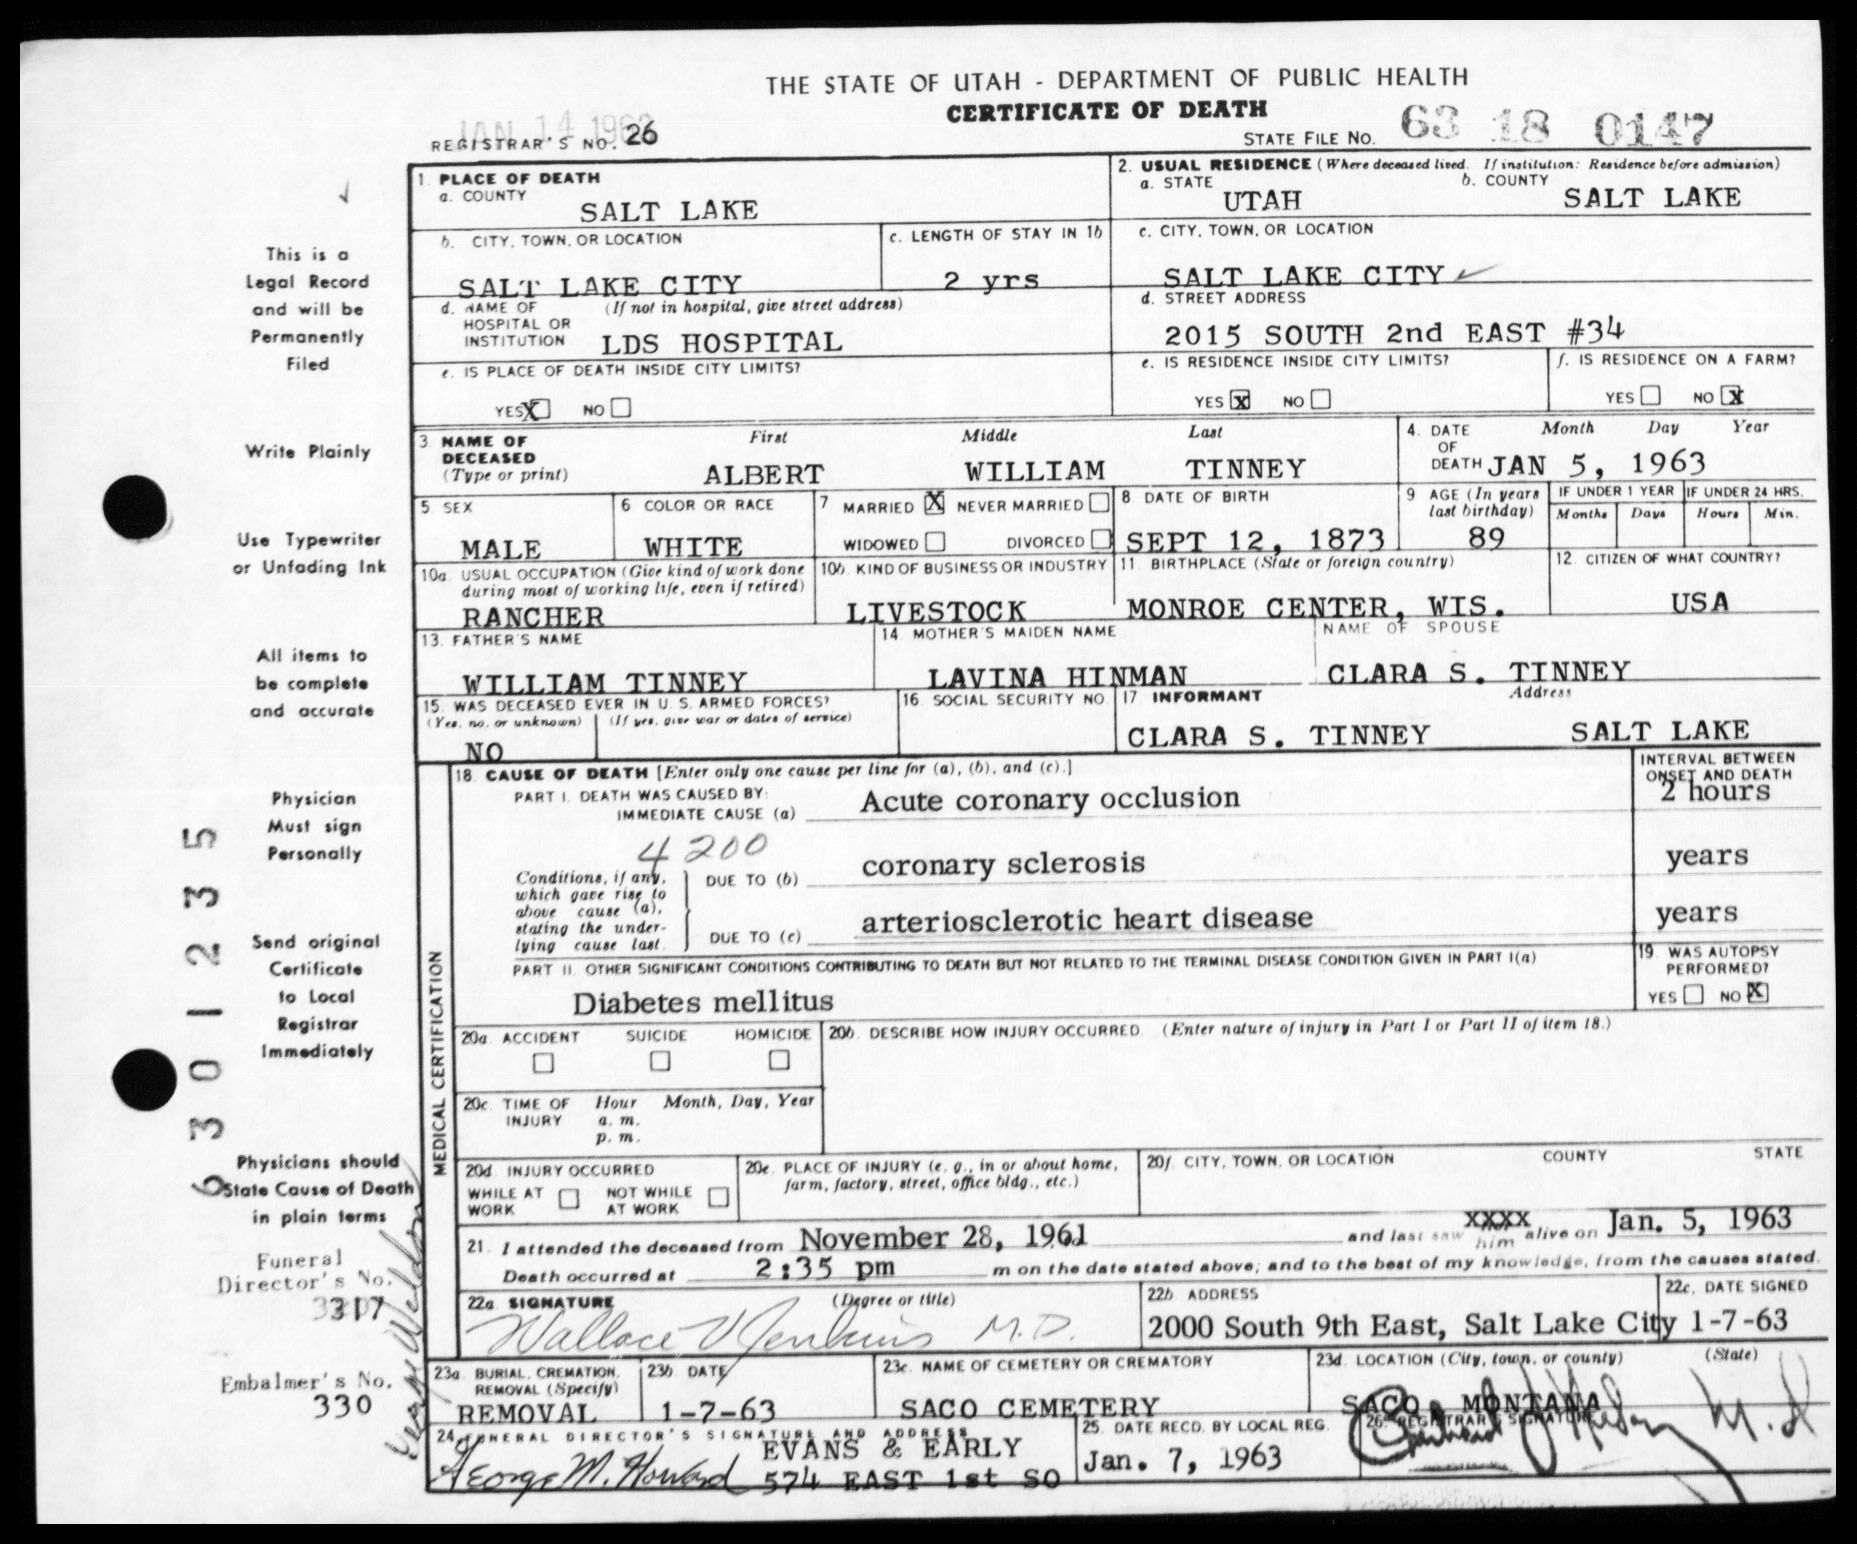 THE STATE OF UTAH - DEPARTMENT OF PUBLIC HEALTH
CERTIFICATE OF DEATH
JAN 14 1963
REGISTRAR'S NO. 26
STATE FILE NO. 63 18 0147
1. PLACE OF DEATH
a. COUNTY
SALT LAKE
2. USUAL RESIDENCE (Where deceased lived. If institution: Residence before admission)
a. STATE
UTAH
b. COUNTY
SALT LAKE
b. CITY, TOWN, OR LOCATION
SALT LAKE CITY
c. LENGTH OF STAY IN 1b
2 yrs
c. CITY, TOWN, OR LOCATION
SALT LAKE CITY
d. NAME OF (If not in hospital, give street address)
HOSPITAL OR
INSTITUTION LDS HOSPITAL
d. STREET ADDRESS
2015 SOUTH 2nd EAST #34
e. IS PLACE OF DEATH INSIDE CITY LIMITS?
YES X NO
e. IS RESIDENCE INSIDE CITY LIMITS?
YES X NO
f. IS RESIDENCE ON A FARM?
YES NO X
3. NAME OF DECEASED (Type or print)
First Middle Last
ALBERT WILLIAM TINNEY
4. DATE OF DEATH Month Day Year
JAN 5, 1963
5. SEX
MALE
6 COLOR OR RACE
WHITE
7 MARRIED X NEVER MARRIED
WIDOWED DIVORCED
8 DATE OF BIRTH
SEPT 12, 1873
9 AGE (In years last birthday)
89
IF UNDER 1 YEAR
Months Days
IF UNDER 24 HRS.
Hours Min.
10a. USUAL OCCUPATION (Give kind of work done during most of working life, even if retired)
RANCHER
10b. KIND OF BUSINESS OR INDUSTRY
LIVESTOCK
11. BIRTHPLACE (State or foreign country)
MONROE CENTER, WIS.
12. CITIZEN OF WHAT COUNTRY?
USA
13. FATHER'S NAME
WILLIAM TINNEY
14 MOTHER'S MAIDEN NAME
LAVINA HINMAN
NAME OF SPOUSE
CLARA S. TINNEY
15. WAS DECEASED EVER IN U. S. ARMED FORCES?
(Yes, no, or unknown) (If yes, give war or dates of service)
NO
16. SOCIAL SECURITY NO.
17 INFORMANT Address
CLARA S. TINNEY SALT LAKE
MEDICAL CERTIFICATION
18. CAUSE OF DEATH [Enter only one cause per line for (a), (b), and (c).]
INTERVAL BETWEEN ONSET AND DEATH
PART I. DEATH WAS CAUSED BY:
IMMEDIATE CAUSE (a) Acute coronary occlusion 2 hours
4200
Conditions, if any, which gave rise to above cause (a), stating the underlying cause last.
DUE TO (b) coronary sclerosis years
DUE TO (c) arteriosclerotic heart disease years
PART II. OTHER SIGNIFICANT CONDITIONS CONTRIBUTING TO DEATH BUT NOT RELATED TO THE TERMINAL DISEASE CONDITION GIVEN IN PART I(a)
Diabetes mellitus
19. WAS AUTOPSY PERFORMED?
YES NO X
20a. ACCIDENT SUICIDE HOMICIDE
20b. DESCRIBE HOW INJURY OCCURRED. (Enter nature of injury in Part I or Part II of item 18.)
20c. TIME OF INJURY Hour Month, Day, Year
a. m.
p. m.
20d. INJURY OCCURRED
WHILE AT WORK NOT WHILE AT WORK
20e. PLACE OF INJURY (e. g., in or about home, farm, factory, street, office bldg., etc.)
20f. CITY, TOWN, OR LOCATION COUNTY STATE
21. I attended the deceased from November 28, 1961 and last saw xxxx him alive on Jan. 5, 1963
Death occurred at 2:35 pm m on the date stated above; and to the best of my knowledge, from the causes stated.
22a. SIGNATURE (Degree or title)
Wallace V Jenkins M.D.
22b ADDRESS
2000 South 9th East, Salt Lake City
22c. DATE SIGNED
1-7-63
23a. BURIAL, CREMATION, REMOVAL (Specify)
REMOVAL
23b. DATE
1-7-63
23c. NAME OF CEMETERY OR CREMATORY
SACO CEMETERY
23d. LOCATION (City, town, or county) (State)
SACO MONTANA
24. FUNERAL DIRECTOR'S SIGNATURE AND ADDRESS
George M. Howard
EVANS & EARLY
574 EAST 1st SO
25. DATE RECD. BY LOCAL REG.
Jan. 7, 1963
26. REGISTRAR'S SIGNATURE
M.D
This is a
Legal Record
and will be
Permanently
Filed
Write Plainly
Use Typewriter
or Unfading Ink
All items to
be complete
and accurate
Physician
Must sign
Personally
Send original
Certificate
to Local
Registrar
Immediately
Physicians should
State Cause of Death
in plain terms
Funeral
Director's No.
3317
Embalmer's No.
330
6301235